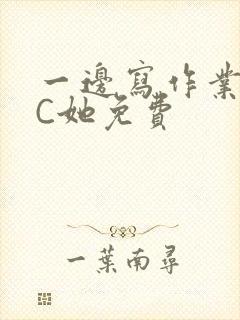 一邊寫作業
C她免費
一葉南尋